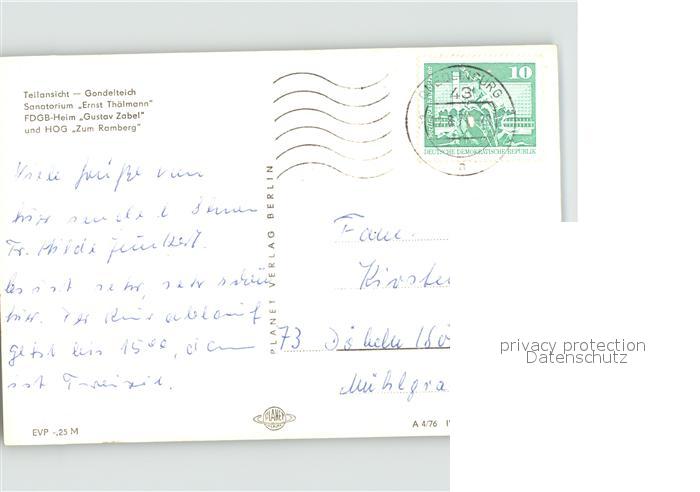 Teilansicht — Gondelteich
Sanatorium „Ernst Thälmann"
FDGB-Heim „Gustav Zabel"
und HOG „Zum Ramberg"
Viele Grüße von
hier sendet Ihnen
Fr. Hilde
Es ist sehr, sehr schön
hier. Der Kurablauf
geht bis 15⁰⁰, dann
ist Freizeit.
PLANET VERLAG BERLIN
10
43
DEUTSCHE DEMOKRATISCHE REPUBLIK
a
Fam.
73 Döbeln
Mühlgra
privacy protection
Datenschutz
PLANET
EVP -,25 M
A 4/76